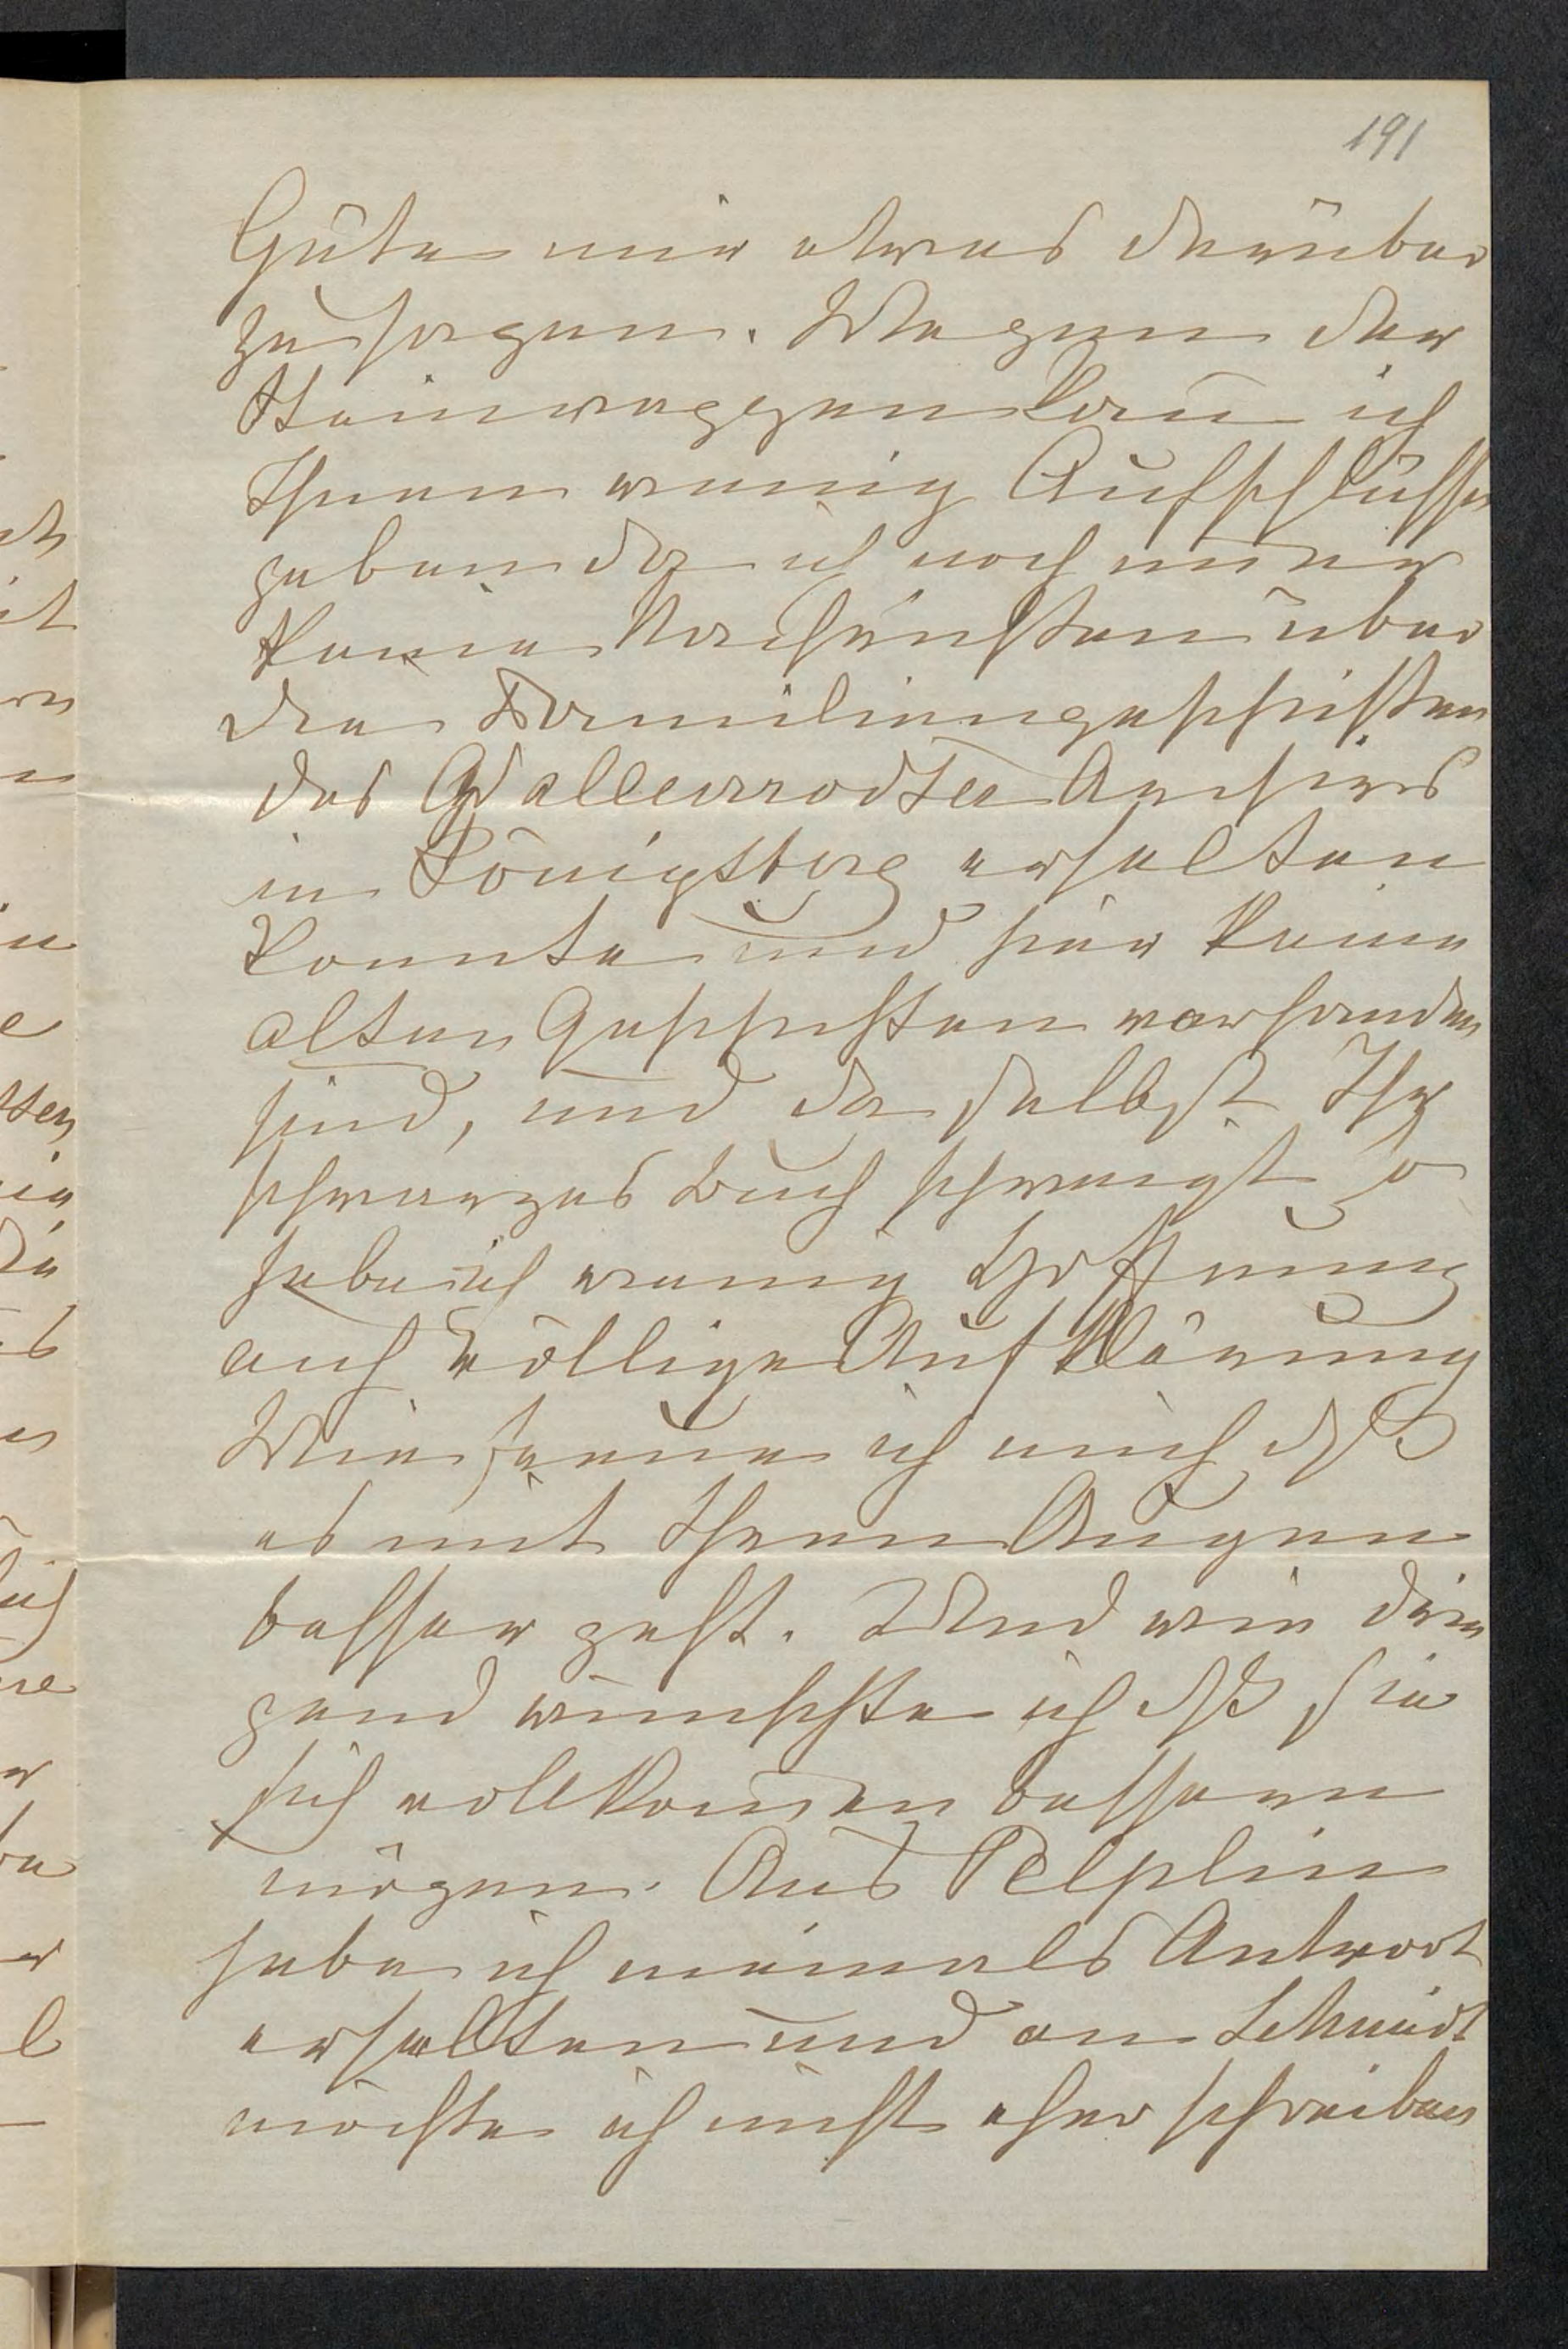 191
Güte mir etwas darüber
zu sagen. Wegen der
Steinwaggen kann ich
Ihnen wenig Aufschlüsse
geben da ich noch immer
keine Nachrichten über
die Familiengeschichten
des Wallenrodter Archivs
in Königsberg erhalten
konnte und hier keine
alten Geschichten vorhanden
sind, und da selbst Ihr
schwarzes Buch schweigt so
habe ich wenig Hoffnung
auf völlige Aufklärung
Wie freue ich mich dß
es mit Ihren Augen
besser geht. Und wie drin
gend wünschte ich dß sie
sich vollkommen bessern
mögen. Aus Pelplin
habe ich niemals Antwort
erhalten und an Schmidt
möchte ich nicht eher schreiben